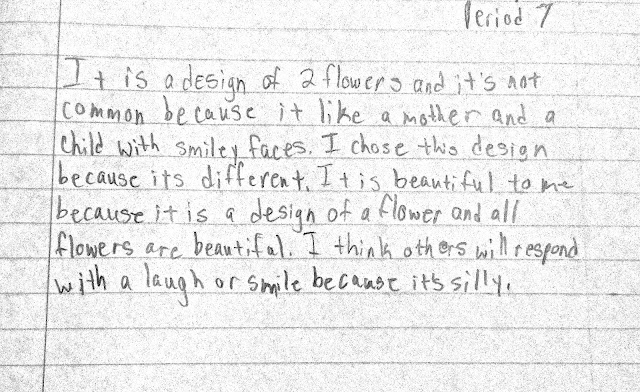 Period 7
It is a design of 2 flowers and it's not
common because it like a mother and a
child with smiley faces. I chose this design
because its different. It is beautiful to me
because it is a design of a flower and all
flowers are beautiful. I think others will respond
with a laugh or smile because it's silly.